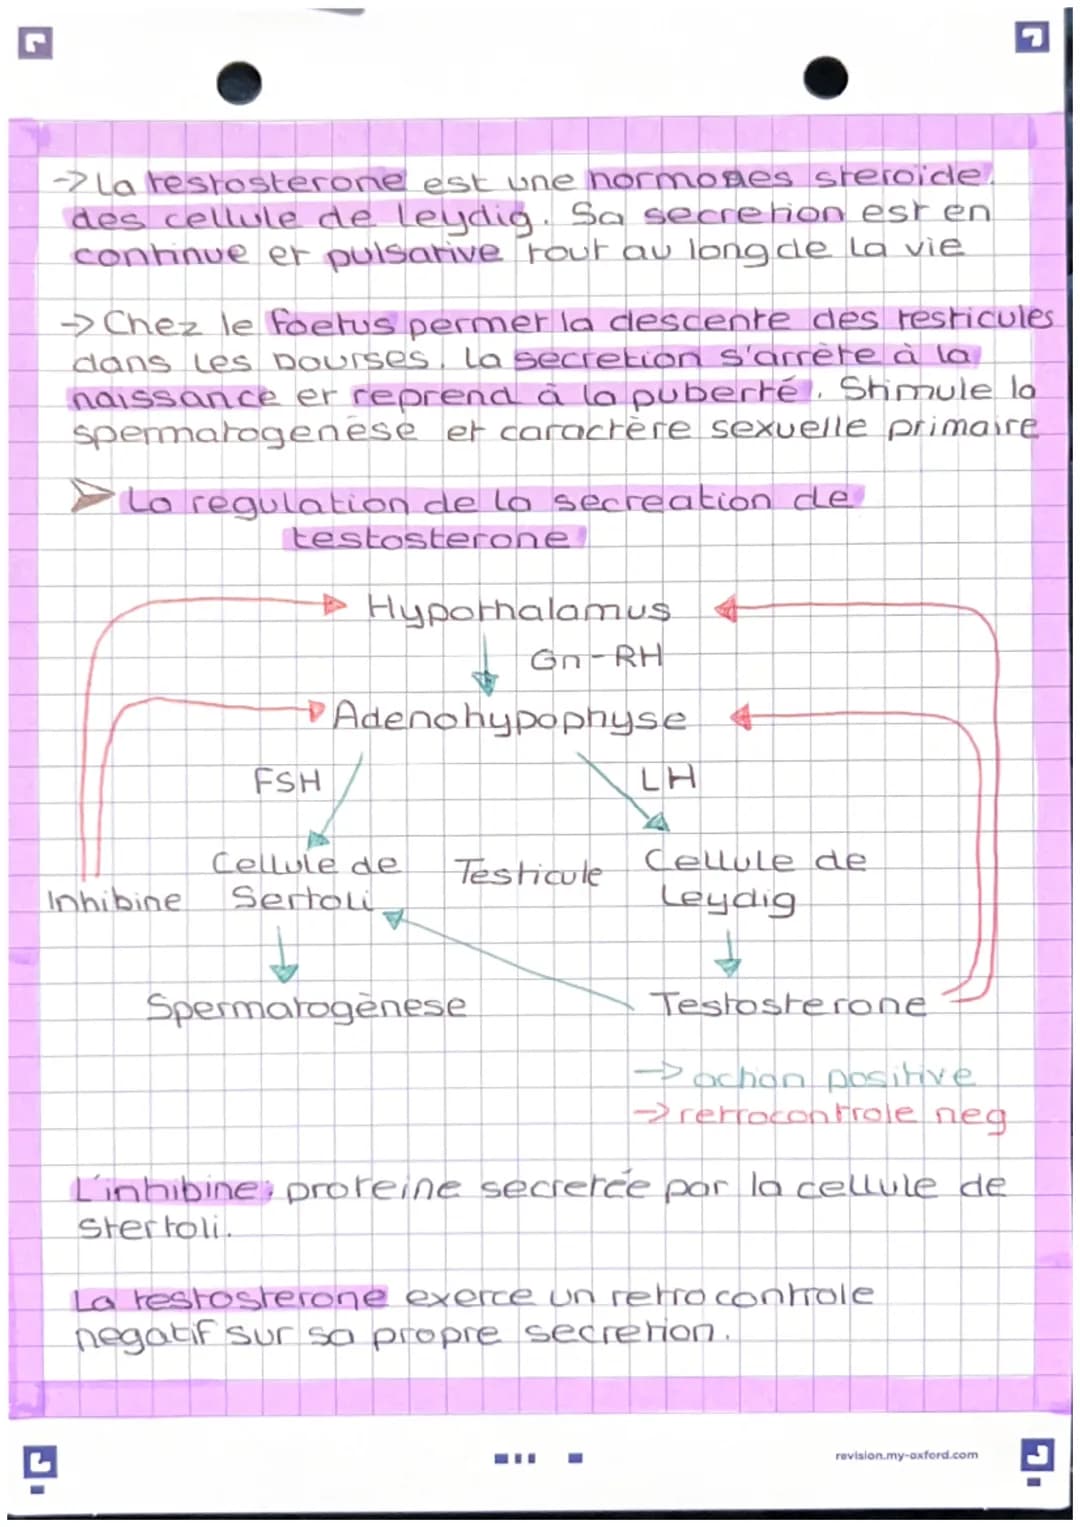 → La testosterone est une hormones steroïde
des cellule de Leydig. Sa secretion est en
continue et pulsative tout au long de la vie
→ Chez le foetus permet la descente des testicules
dans les bourses. La secretion s'arrète à la
naissance et reprend à la puberté. Stimule la
spermatogenèse et caractère sexuelle primaire
➤ La regulation de la secreation de
testosterone
Hypothalamus
Gn-RH
Adenohypophyse
FSH
LH
Cellule de
Sertoli
Testicule
Cellule de
Leydig
Inhibine
Spermatogènese
Testosterone
→ action positive
→ retrocontrole neg
L'inhibine: proteine secretée par la cellule de
Stertoli.
La testosterone exerce un retrocontrole
negatif sur sa propre secretion.
revision.my-oxford.com